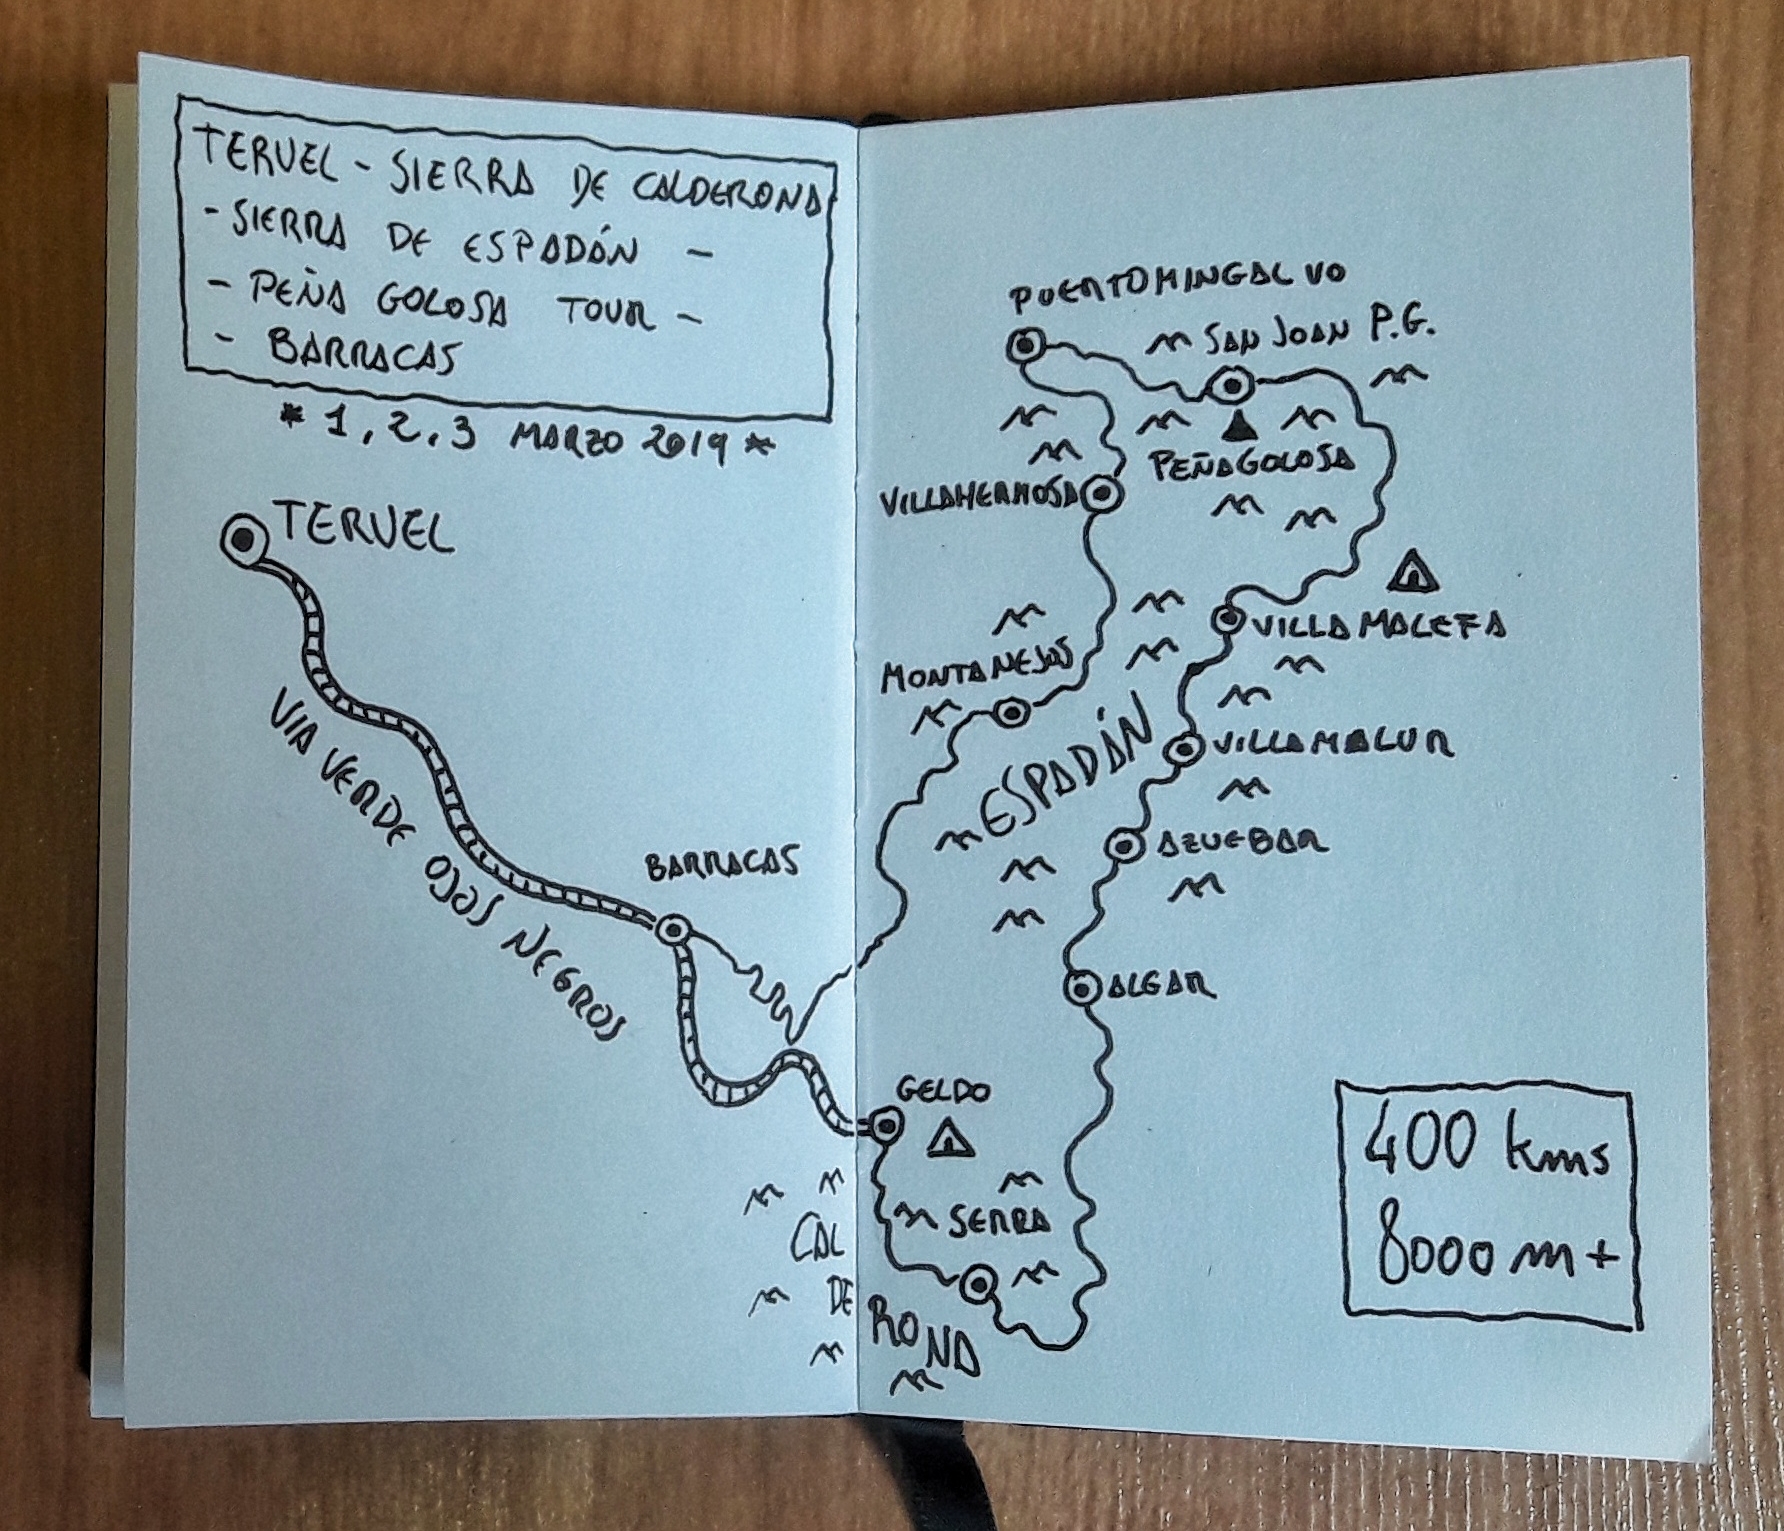 TERUEL - SIERRA DE CALDERONA
- SIERRA DE ESPADÁN -
- PEÑA GOLOSA TOUR -
- BARRACAS
* 1, 2, 3 MARZO 2019 *
TERUEL
VIA VERDE OJOS NEGROS
BARRACAS
CAL
DE
RONA
PUERTOMINGALVO
SAN JOAN P.G.
PEÑAGOLOSA
VILLAHERMOSA
VILLAMALEFA
MONTANEJOS
ESPADÁN
VILLAMALUR
AZUEBAR
ALGAR
GELDO
SERRA
400 kms
8000 m +